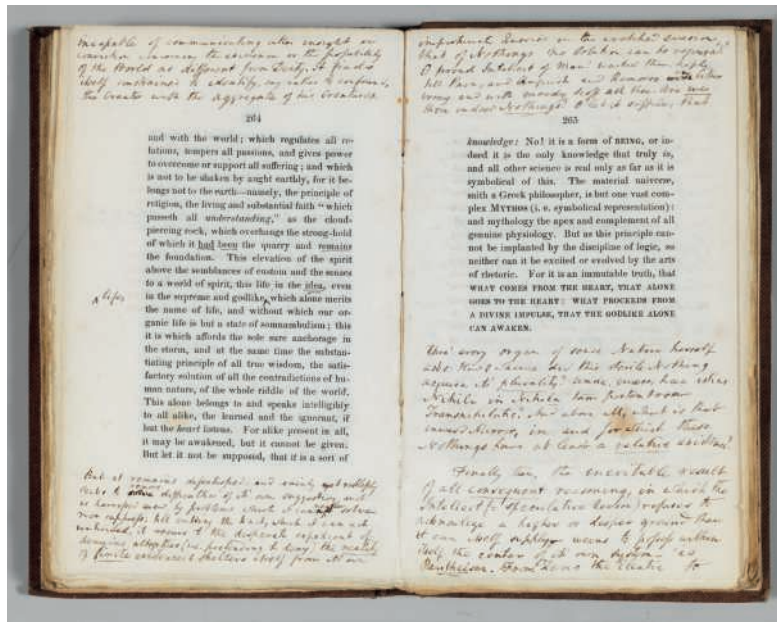 incapable of communicating either insight or
conviction concerning the existence or the possibility
of the World as different from Deity. It finds
itself constrained to identify, nay rather to confound,
the Creator with the aggregate of his Creatures
264
and with the world; which regulates all re-
lations, tempers all passions, and gives power
to overcome or support all suffering; and which
is not to be shaken by aught earthly, for it be-
longs not to the earth—namely, the principle of
religion, the living and substantial faith “which
passeth all understanding,” as the cloud-
piercing rock, which overhangs the strong-hold
of which it had been the quarry and remains
the foundation. This elevation of the spirit
above the semblances of custom and the senses
to a world of spirit, this life in the idea, even
in the supreme and godlike, which alone merits
life,
the name of life, and without which our or-
ganic life is but a state of somnambulism; this
it is which affords the sole sure anchorage in
the storm, and at the same time the substan-
tiating principle of all true wisdom, the satis-
factory solution of all the contradictions of hu-
man nature, of the whole riddle of the world.
This alone belongs to and speaks intelligibly
to all alike, the learned and the ignorant, if
but the heart listens. For alike present in all,
it may be awakened, but it cannot be given.
But let it not be supposed, that it is a sort of
But it remains and
difficulties of it's own suggesting, and
problems which it cannot solve
it can not
the desperate expedient of
denying altogether (or pretending to deny) the reality
of finite existence: shelters itself from it's own
that of Nothings no Solution can be required.
O proud Intellect of Man!
till Pain, and Anguish and Remorse
and with moody scoff ask thee Are we
then indeed Nothings? O let it suffice, that
265
knowledge: No! it is a form of BEING, or in-
deed it is the only knowledge that truly is,
and all other science is real only as far as it is
symbolical of this. The material universe,
saith a Greek philosopher, is but one vast com-
plex MYTHOS (i. e. symbolical representation):
and mythology the apex and complement of all
genuine physiology. But as this principle can-
not be implanted by the discipline of logic, so
neither can it be excited or evolved by the arts
of rhetoric. For it is an immutable truth, that
WHAT COMES FROM THE HEART, THAT ALONE
GOES TO THE HEART: WHAT PROCEEDS FROM
A DIVINE IMPULSE, THAT THE GODLIKE ALONE
CAN AWAKEN.
thro' every organ of sense Nature herself
asks Thus: Whence did this sterile Nothing
acquire it's plurality? unde, quæso, hæc istius
Nihili in Nihila tam portentosum
Transnihilatio? And above all, what is that
inward Mirror, in and for which these
Nothings have at least a relative existence?
Finally then, the inevitable result
of all consequent reasoning, in which the
Intellect (or speculative reason) refuses to
acknowlege a higher or deeper ground than
it can itself supply, and means to possess within
itself the center of it's own System, is
Pantheism. From Zeno the Eleatic to